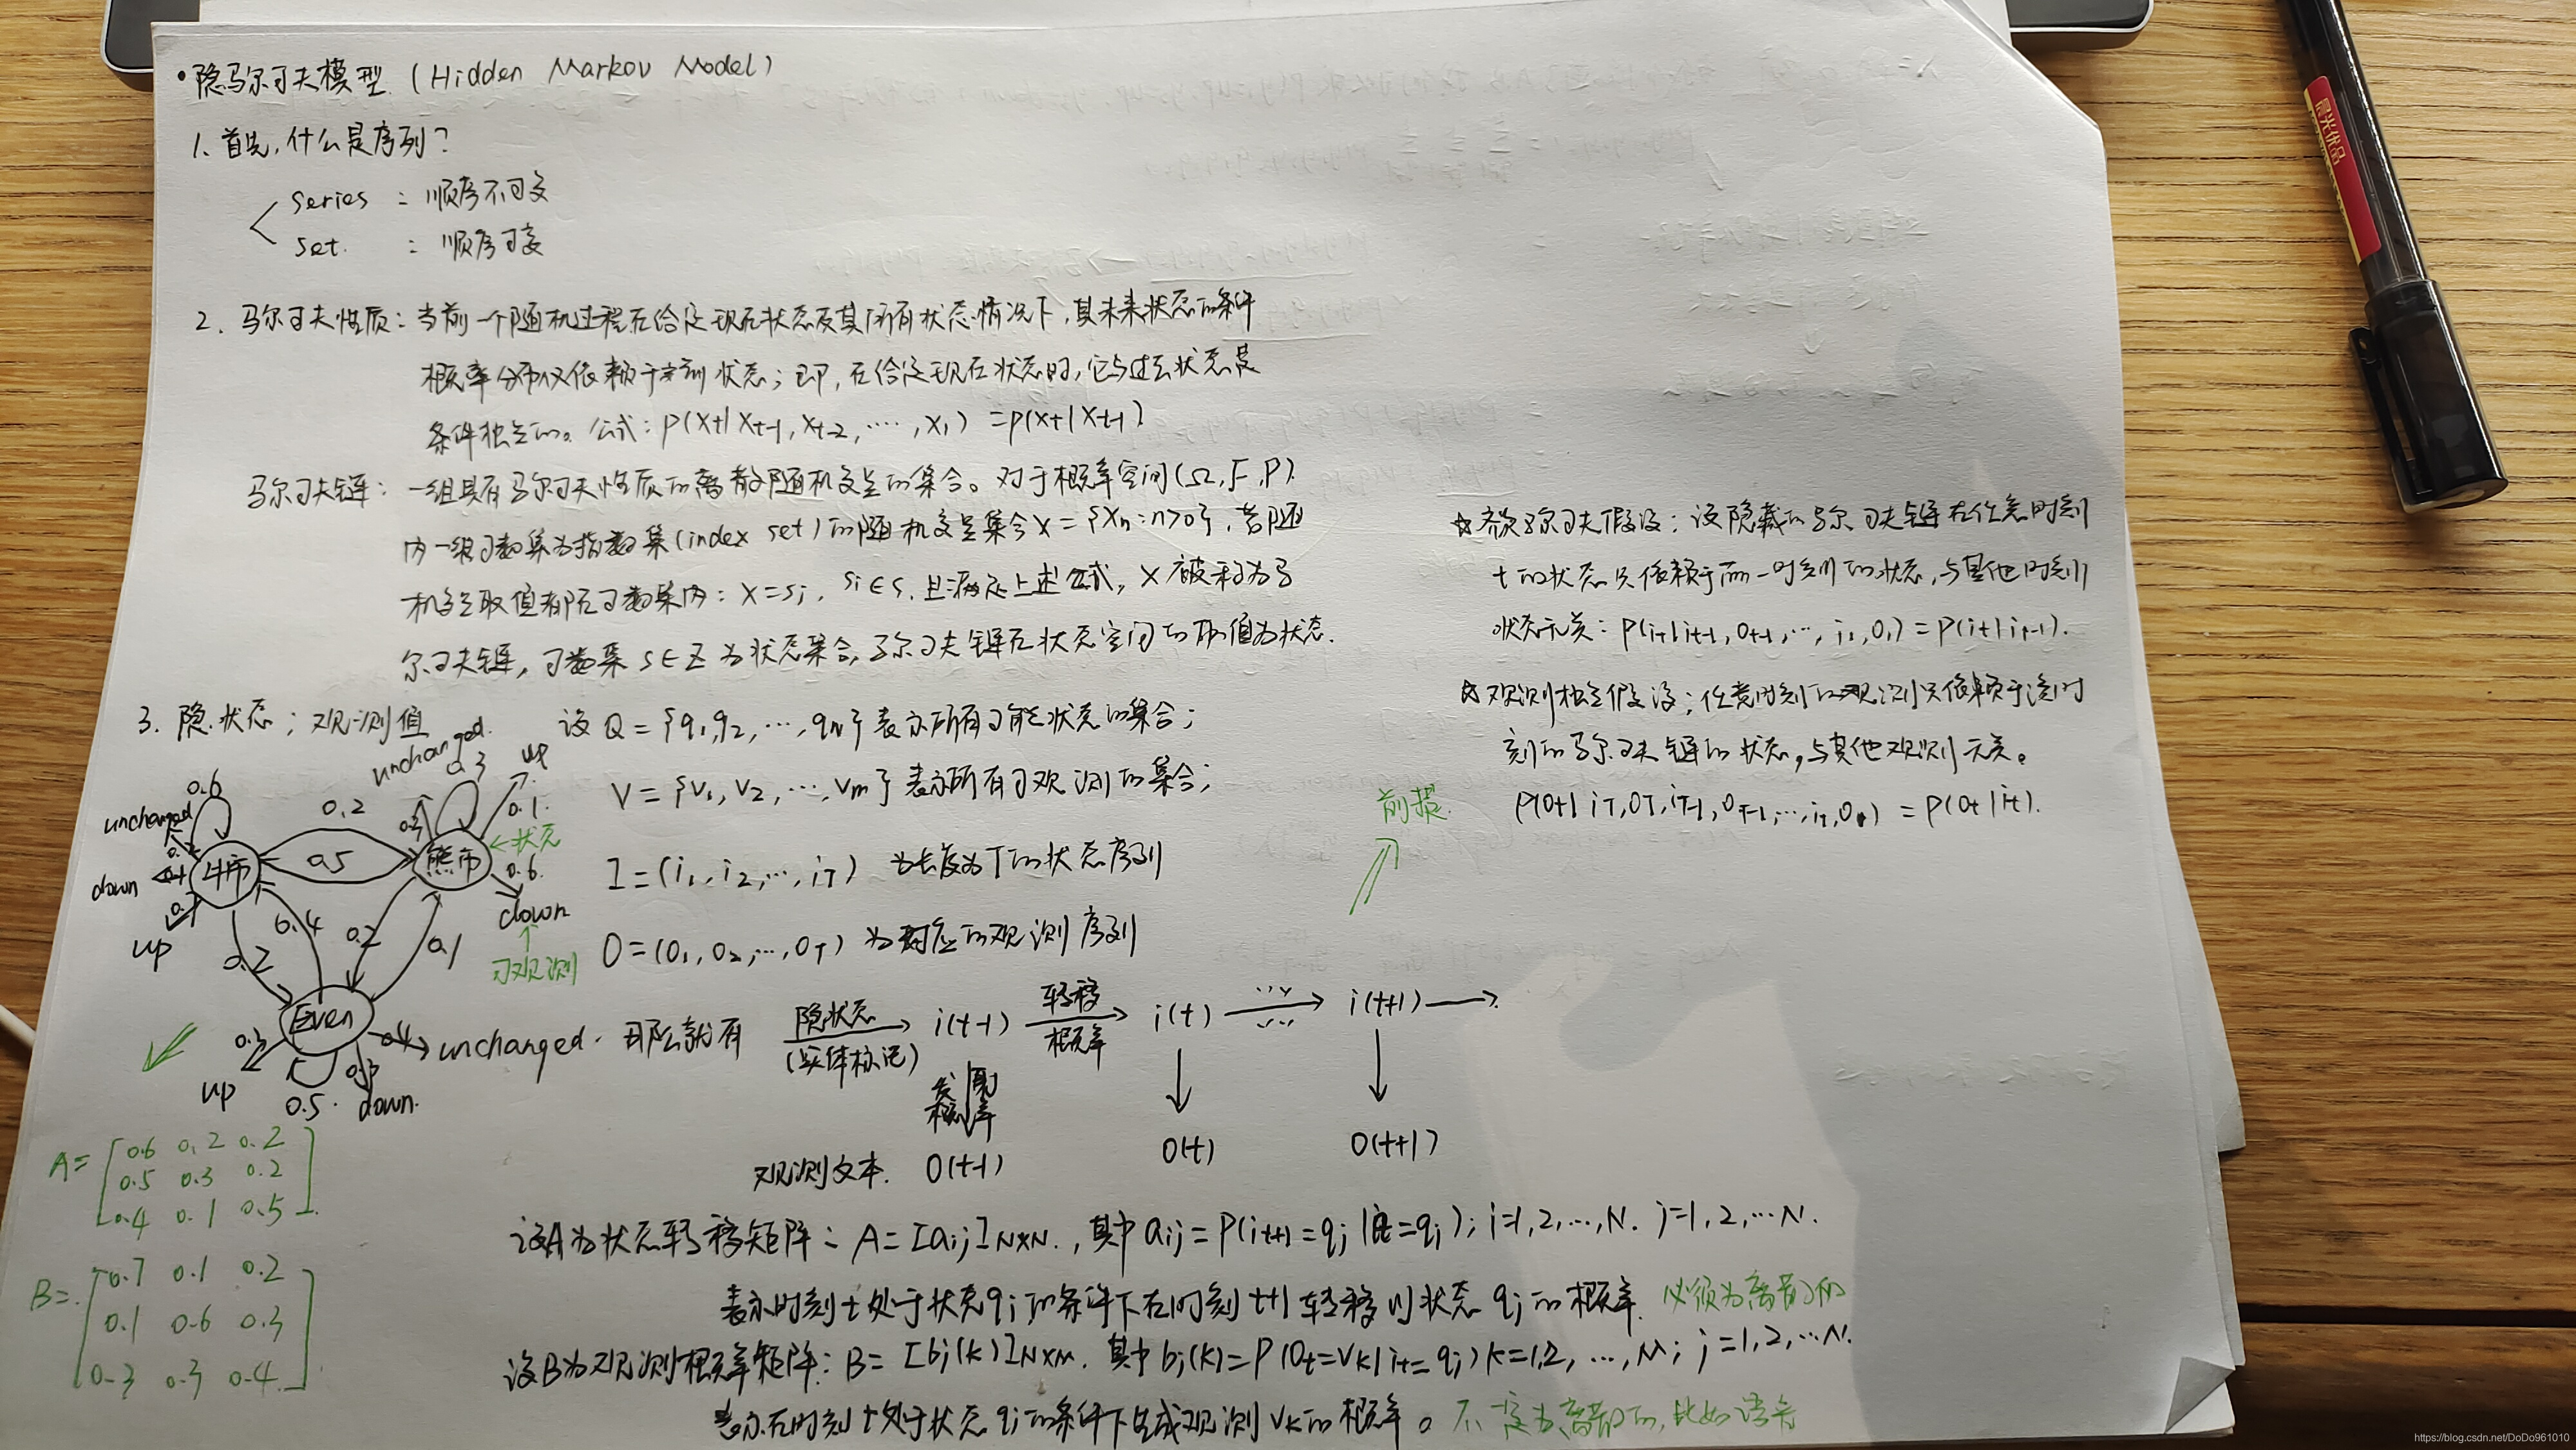 •隐马尔可夫模型 (Hidden Markov Model)
1. 首先,什么是序列?
series : 顺序不可变
set. : 顺序可变
2. 马尔可夫性质: 当前一个随机过程在给定现在状态及其所有状态情况下,其未来状态的条件
概率分布仅依赖于当前状态; 即,在给定现在状态时,它与过去状态是
条件独立的。公式: P(Xt|Xt-1, Xt-2, ····, X1) = P(Xt|Xt-1)
马尔可夫链: 一组具有马尔可夫性质的离散随机变量的集合。对于概率空间(Ω, F, P)
内一组可数集为指数集(index set)的随机变量集合X={Xn:n>0}, 若随
机变量取值都在可数集内: X=Si, Si∈S, 且满足上述公式, X被称为马
尔可夫链, 可数集 S∈Z 为状态集合, 马尔可夫链在状态空间的取值为状态.
☆ 齐次马尔可夫假设: 设隐藏的马尔可夫链在任意时刻
t的状态只依赖于前一时刻的状态,与其他时刻
状态无关: P(it|it-1, Ot-1, ···, i1, O1) = P(it|it-1).
☆ 观测独立假设; 任意时刻的观测只依赖于该时
刻的马尔可夫链的状态,与其他观测无关。
P(Ot|iT, OT, iT-1, OT-1, ···, i1, O1) = P(Ot|it).
前提.
3. 隐状态; 观测值
设 Q = {q1, q2, ···, qN} 表示所有可能状态的集合;
V = {v1, v2, ···, vm} 表示所有可观测的集合;
I = (i1, i2, ···, iT) 为长度为T的状态序列
O = (O1, O2, ···, OT) 为对应的观测序列
unchanged.
0.3
up
0.6
unchanged
0.2
0.1
←状态
牛市
0.5
熊市
0.6
down
down
up
0.4
0.2
0.1
0.2
可观测
Even
0.4
unchanged.
up
0.5
down.
那么就有
隐状态
(实体标记)
i(t-1)
转移
概率
i(t)
···
i(t+1)
发射
概率
观测文本.
O(t-1)
O(t)
O(t+1)
A=
0.6 0.2 0.2
0.5 0.3 0.2
0.4 0.1 0.5
B=
0.7 0.1 0.2
0.1 0.6 0.3
0.3 0.3 0.4
设A为状态转移矩阵: A=[aij]N×N. , 其中 aij = P(it+1 = qj | it = qi); i=1,2,···,N. j=1,2,···N.
表示时刻 t 处于状态qi的条件下在时刻 t+1 转移到状态 qj 的概率. 必须为离散的
设B为观测概率矩阵: B= [bj(k)]N×M. 其中 bj(k)=P(Ot=Vk|it=qj) k=1,2, ···, M; j=1,2,···N.
表示在时刻 t 处于状态 qj 的条件下生成观测 Vk的概率。不一定为离散的, 比如语音
晨光优品
https://blog.csdn.net/DoDo961010